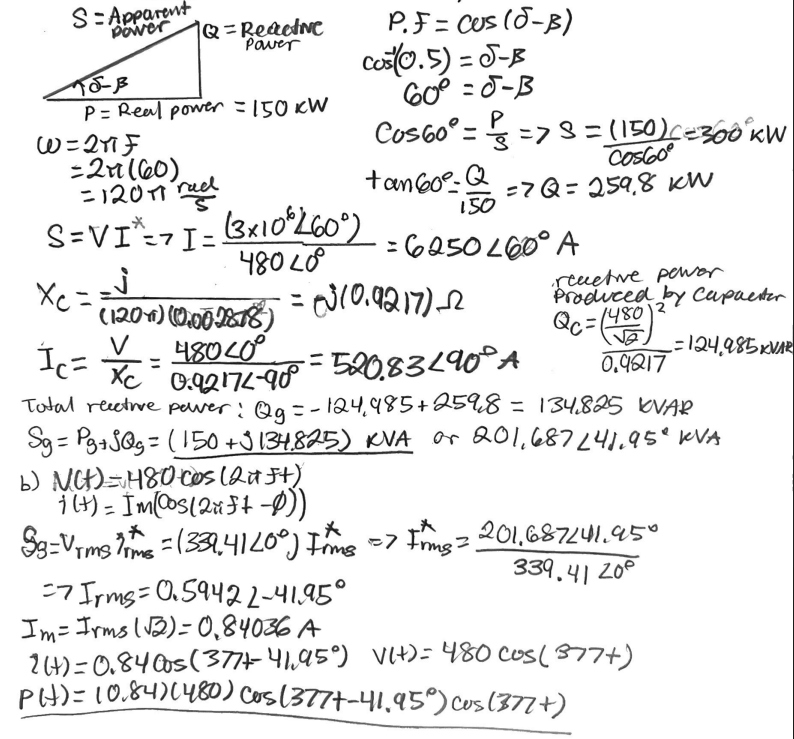 S = Apparent power
Q = Reactive Power
δ-β
P = Real power = 150 KW
P.F = cos(δ-β)
cos⁻¹(0.5) = δ-β
60° = δ-β
Cos60° = P/S => S = (150)/cos60° = 300 KW
tan60° = Q/150 => Q = 259.8 KW
ω = 2πf
= 2π(60)
= 120π rad/s
S = VI* => I = (3x10⁶∠60°)/480∠0° = 6250∠60° A
Xc = -j/(120π)(0.002878) = -j(0.9217) Ω
reactive power
Produced by Capacitor
Qc = (480/√2)²/0.9217 = 124.985 KVAR
Ic = V/Xc = 480∠0°/0.9217∠-90° = 520.83∠90° A
Total reactive power: Qg = -124.985 + 259.8 = 134.825 KVAR
Sg = Pg+jQg = (150 + j134.825) KVA or 201.687∠41.95° KVA
b) V(t) = 480 cos(2πft)
i(t) = Im(Cos(2πft - φ))
Sg = Vrms I*rms = (339.41∠0°) I*rms => I*rms = 201.687∠41.95°/339.41∠0°
=> Irms = 0.5942∠-41.95°
Im = Irms(√2) = 0.84036 A
i(t) = 0.84 Cos(377t - 41.95°) V(t) = 480 cos(377t)
P(t) = (0.84)(480) cos(377t-41.95°) cos(377t)